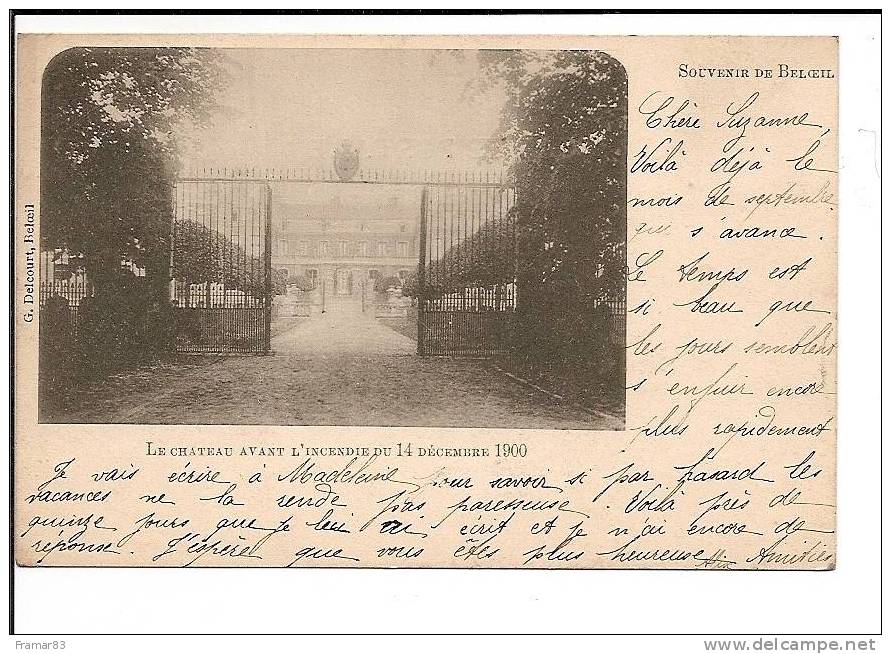 SOUVENIR DE BELŒIL
Chère Suzanne,
Voilà déjà le
mois de septembre
qui s'avance.
Le temps est
si beau que
les jours semblent
s'enfuir encore
plus rapidement
G. Delcourt, Belœil
LE CHATEAU AVANT L'INCENDIE DU 14 DÉCEMBRE 1900
Je vais écrire à Madeleine pour savoir si par hasard les
vacances ne la rende pas paresseuse. Voilà près de
quinze jours que je lui ai écrit et je n'ai encore de
réponse. J'espère que vous êtes plus heureuse. Amitiés
Alix
Framar83
www.delcampe.net